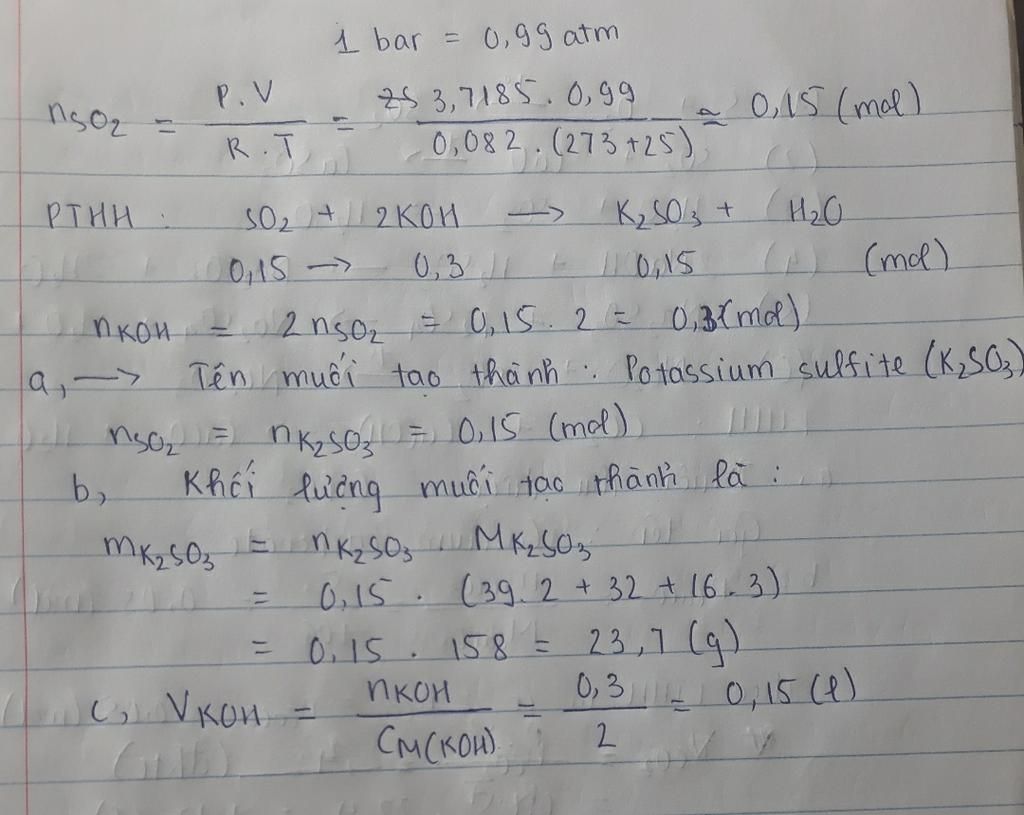 1 bar = 0,99 atm
nSO2 = P.V / R.T = 3,7185. 0,99 / 0,082. (273+25) ≃ 0,15 (mol)
PTHH: SO2 + 2KOH → K2SO3 + H2O
0,15 → 0,3 0,15 (mol)
nKOH = 2nSO2 = 0,15. 2 = 0,3 (mol)
a, → Tên muối tạo thành: Potassium sulfite (K2SO3)
nSO2 = nK2SO3 = 0,15 (mol)
b, Khối lượng muối tạo thành là:
mK2SO3 = nK2SO3 . MK2SO3
= 0,15 . (39.2 + 32 + 16.3)
= 0,15 . 158 = 23,7 (g)
c, VKOH = nKOH / CM(KOH) = 0,3 / 2 = 0,15 (l)